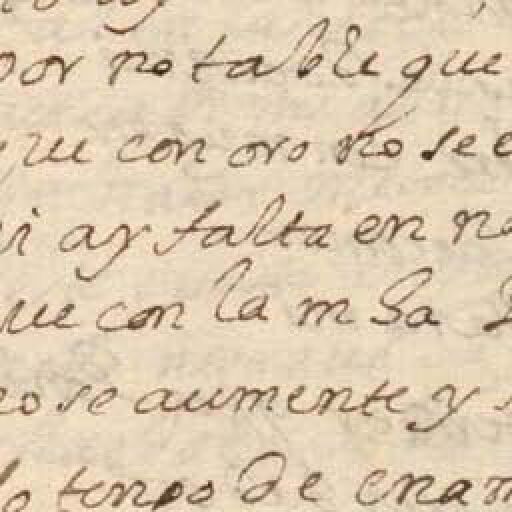 por notable que
que con oro no se
i ay falta en
que con la m ha
no se aumente y
lo tengo de enam